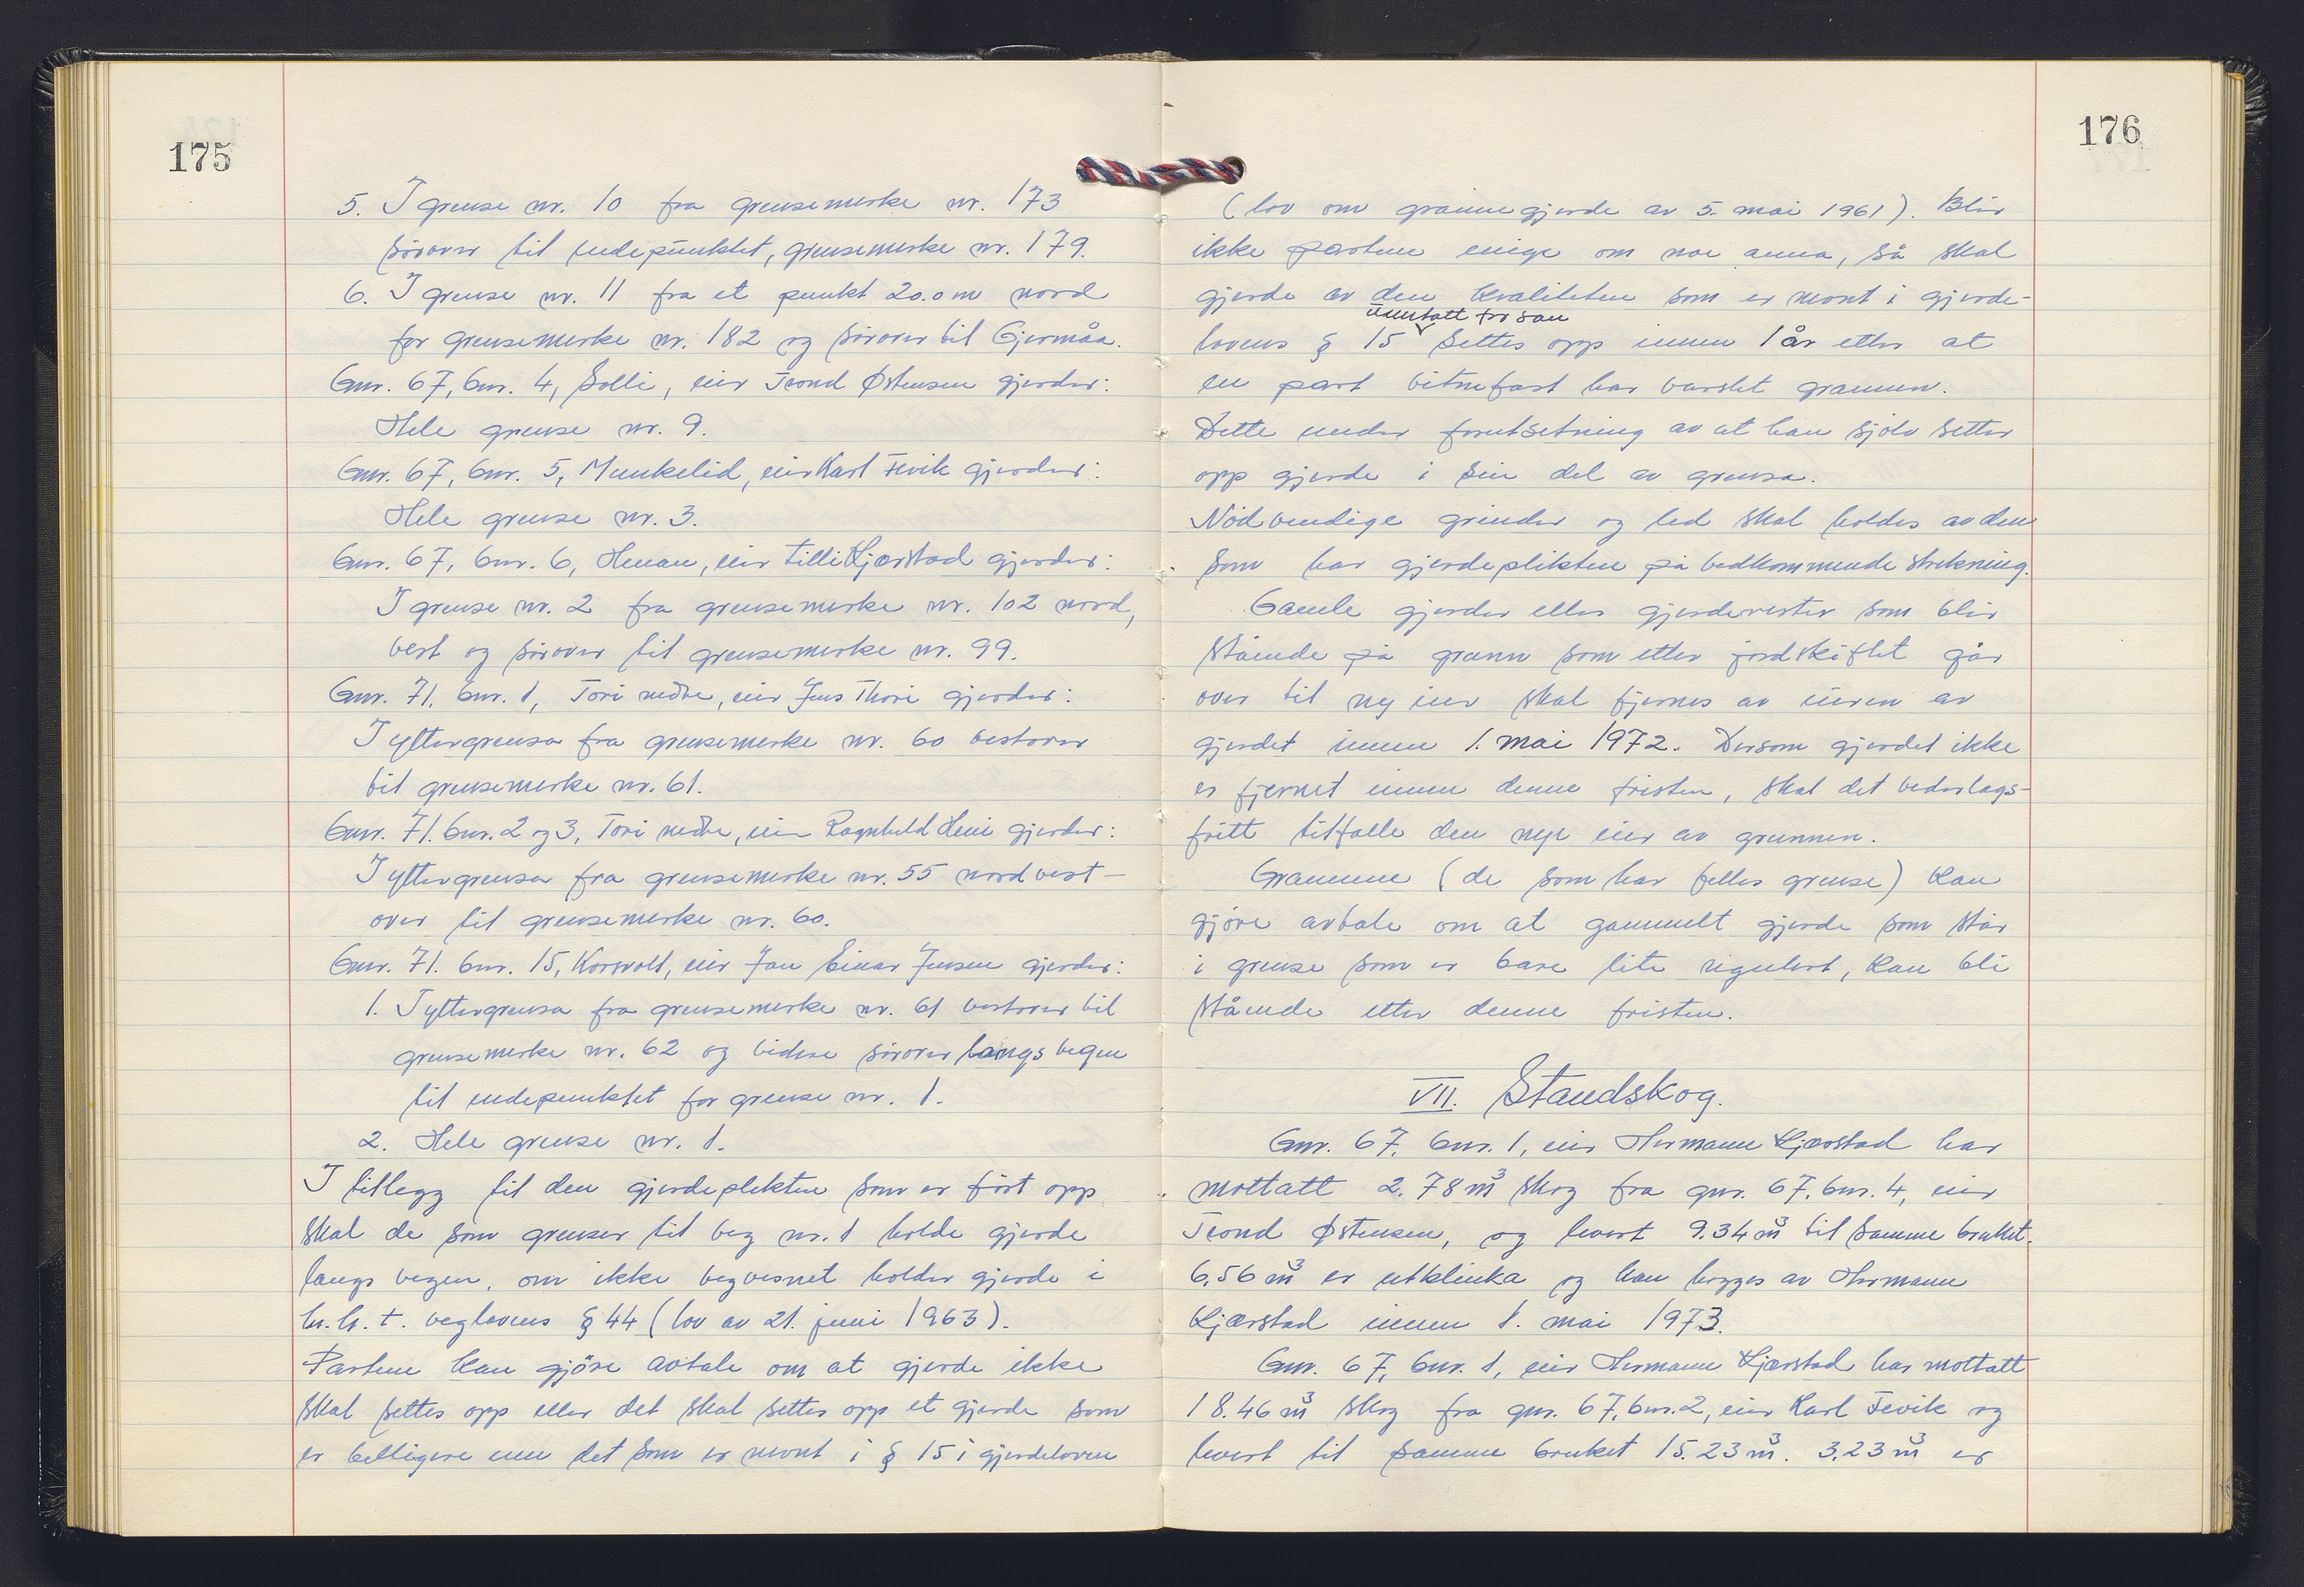 175
5. I grense nr. 10 fra grensemerke nr. 173
sørover til endepunktet, grensemerke nr. 179.
6. I grense nr. 11 fra et punkt 20.0 m nord
for grensemerke nr. 182 og sørover til Gjermåa.
Gnr. 67, bnr. 4, Solli, eier Trond Østensen gjerder:
Hele grense nr. 9.
Gnr. 67, bnr. 5, Munkelid, eier Karl Fevik gjerder:
Hele grense nr. 3.
Gnr. 67, bnr. 6, Henan, eier Tilli Kjærstad gjerder:
I grense nr. 2 fra grensemerke nr. 102 nord,
vest og sørover til grensemerke nr. 99.
Gnr. 71. bnr. 1, Tori nedre, eier Jens Thori gjerder:
I yttergrensa fra grensemerke nr. 60 vestover
til grensemerke nr. 61.
Gnr. 71. bnr. 2 og 3, Tori nedre, eier Ragnhild Heni gjerder:
I yttergrensa fra grensemerke nr. 55 nordvest-
over til grensemerke nr. 60.
Gnr. 71. bnr. 15, Korsvolt, eier Jan Einar Jensen gjerder:
1. I yttergrensa fra grensemerke nr. 61 vestover til
grensemerke nr. 62 og videre sørover langs vegen
til endepunktet for grense nr. 1.
2. Hele grense nr. 1.
I tillegg til den gjerdeplikten som er ført opp
skal de som grenser til veg nr. 1 holde gjerde
langs vegen, om ikke vegvesnet holder gjerde i
h.h.t. veglovens § 44 (lov av 21. juni 1963).
Partene kan gjöre avtale om at gjerde ikke
skal settes opp eller det skal settes opp et gjerde som
er billigere enn det som er nevnt i § 15 i gjerdeloven
176
(lov om grannegjerde av 5. mai 1961). Blir
ikke partene enige om noe anna, så skal
gjerde av den kvaliteten som er nevnt i gjerde-
unntatt for sau
lovens § 15 settes opp innen 1 år etter at
en part vitnefast har varslet grannen.
Dette under forutsetning av at han sjølv setter
opp gjerde i sin del av grensa.
Nødvendige grinder og led skal holdes av den
som har gjerdeplikten på vedkommende strekning.
Gamle gjerder eller gjerderester som blir
stående på grunn som etter jordskiftet går
over til ny eier skal fjernes av eieren av
gjerdet innen 1. mai 1972. Dersom gjerdet ikke
er fjernet innen denne fristen, skal det vederlags-
fritt tilfalle den nye eier av grunnen.
Grannene (de som har felles grense) kan
gjöre avtale om at gammelt gjerde som står
i grense som er bare lite regulert, kan bli
stående etter denne fristen.
VII. Standskog.
Gnr. 67, bnr. 1, eier Hermann Kjærstad har
mottatt 2.78 m³ skog fra gnr. 67, bnr. 4, eier
Trond Østensen, og levert 9.34 m³ til samme bruket.
6,56 m³ er utklinka og kan hogges av Hermann
Kjærstad innen 1. mai 1973.
Gnr. 67, bnr. 1, eier Hermann Kjærstad har mottatt
18.46 m³ skog fra gnr. 67, bnr. 2, eier Karl Fevik og
levert til samme bruket 15.23 m³. 3,23 m³ er